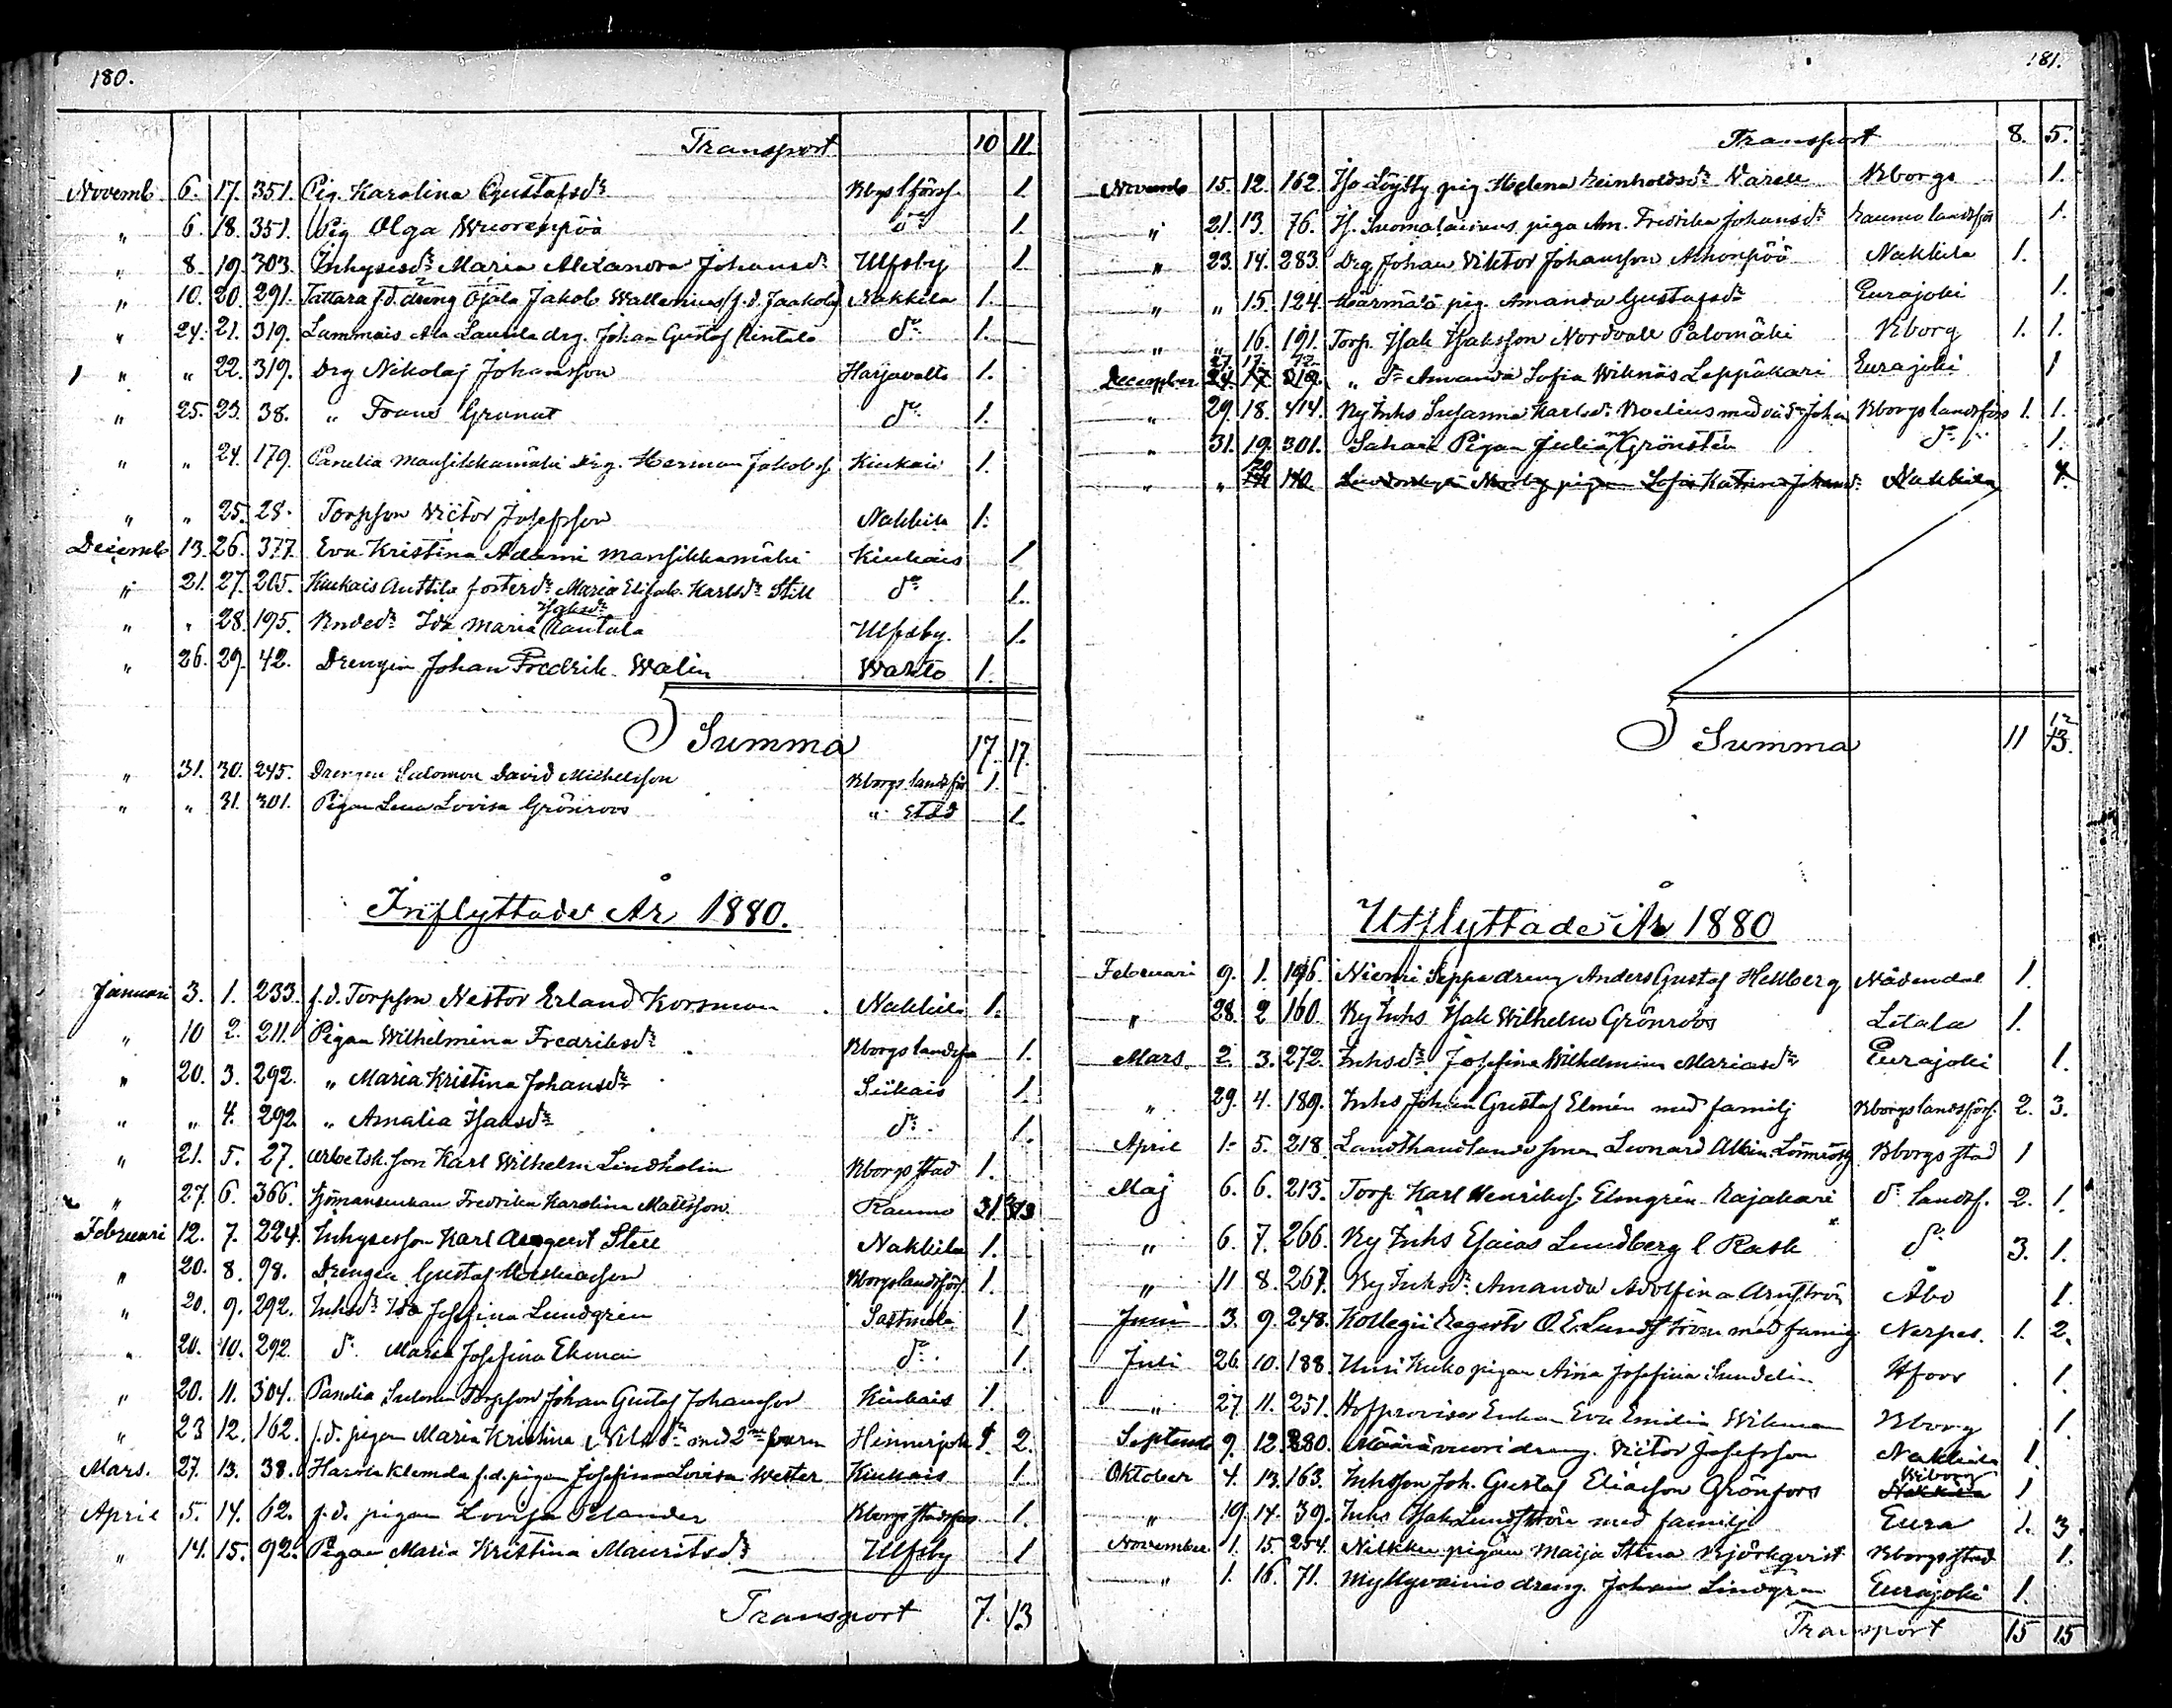 180.
Transport 10 11
Novemb. 6. 17. 351. Pig. Karolina Gustafsdr Kbgs lförs. 1.
" 6. 18. 351. Pig Olga Wuorenpää do 1.
" 8. 19. 303. Inhysesdr Maria Alexandra Johansdr Ulfsby 1
" 10. 20. 291. Tattara f.d. dräng Ojala Jakob Wallenius (f.d. Jaakola) Nakkila 1.
" 24. 21. 319. Lammais Ala Laurila drg. Johan Gustaf Rintala do 1.
" " 22. 319. Drg Nikolaj Johansson Harjavalta 1.
" 25. 23. 38. " Frans Granat do 1.
" " 24. 179. Panelia Mansikkamäki Drg. Herman Jakobsf. Kiukais 1.
" " 25. 28. Torpson Victor Josefsson Nakkila 1.
Decemb 13. 26. 377. Eva Kristina Adami Mansikkamäki Kiukais 1
" 21. 27. 205. Kiukais Anttila fosterdr Maria Elisab. Karlsdr Still do 1.
" " 28. 195. Bndedr Ida Maria Isaksdr Rantala Ulfsby. 1.
" 26. 29. 42. Drengen Johan Fredrik Walin Wahto 1.
Summa 17. 17.
" 31. 30. 245. Drengen Salomon David Michelsson Kborgs landsför 1.
" " 31. 301. Pigan Lena Lovisa Grönroos " Stad 1.
Inflyttade År 1880.
Januari 3. 1. 233. f.d. Torpson Nestor Erland Korsman Nakkila 1.
" 10 2. 211. Pigan Wilhelmina Fredriksdr Kborgs landsfö 1.
" 20. 3. 292. " Maria Kristina Johansdr Siikais 1.
" " 4. 292. " Amalia Isaksdr do 1.
" 21. 5. 27. Arbetsk. son Karl Wilhelm Lindholm Kborgs stad 1.
" 27. 6. 366. Sjömansenkan Fredrika Karolina Mattsson Raumo
Februari 12. 7. 224. Inhysesson Karl August Still Nakkila 1.
" 20. 8. 98. Drengen Gustaf Kborgs landsförs. 1.
" 20. 9. 292. Inhsdr Ida Josefina Lundgren Sastmola 1
" 20. 10. 292 do Maria Josefina Ekman do 1.
" 20. 11. 304. Panelia Torpson Johan Gustaf Johansson Kiukais 1.
" 23 12. 162. f.d. pigan Maria Kristina med 2ne Hinnerjoki 1. 2.
Mars. 27. 13. 38. Harola Klemola f.d. pigan Josefina Lovisa Wester Kiukais 1
April 5. 14. 62. f.d. pigan Lovisa Selander Kborgs stadsförs 1.
" 14. 15. 92. Pigan Maria Kristina Mauritsdr Ulfsby 1
Transport 7. 13
181.
Transport 8. 5.
Novemb 15. 12. 162. Iso Löytty pig. Helena Reinholdsdr Kborgs 1.
" 21. 13. 76. H. Suomalainens piga Am. Fredrika Johansdr Raumo landsför 1.
" 23. 14. 283. Drg Johan Viktor Johansson Ahonpää Nakkila 1.
" " 15. 124. pig. Amanda Gustafsdr Eurajoki 1.
" " 16. 191. Torp. Isak Isaksson Nordvall Palomäki Kborg 1. 1.
December 27. 17. " do Amanda Sofia Wiknäs Leppäkari Eurajoki 1
" 29. 18. 414. Ny Inhs Susanna Karlsdr Kborgs landsförs 1. 1.
" 31. 19. 301. Sahari Pigan Julia Grönstén do 1.
" " 20 170. pigan Sofia Katrina Johansdr Nakkila
Summa 11 12 13.
Utflyttade År 1880
Februari 9. 1. 196. Niemi Seppä dreng Anders Gustaf Hellberg Nådendal 1.
" 28. 2 160. Ny Inhs Isak Wilhelm Grönroos Letala 1.
Mars. 2. 3. 272. Inhsdr Josefina Wilhelmina Mariasdr Eurajoki 1.
" 29. 4. 189. Inhs Johan Gustaf Elmén med familj Kborgs landsförs. 2. 3.
April 1. 5. 218. Landthandlandesonen Leonard Albin Kborgs stad 1
Maj 6. 6. 213. Torp. Karl Henriksf. Elmgrén Rajakari do landsf. 2. 1.
" 6. 7. 266. Ny Inhs Esaias Lundberg l Rask do 3. 1.
" 11 8. 267. Ny Inhsdr Amanda Adolfina Åbo 1.
Juni 3. 9. 248. Kollegii Regestr O. E. Lundström med familj Nerpes. 1. 2.
Juli 26. 10. 188. Uusi Kuko pigan Aina Josefina Sundelin Hfors 1.
" 27. 11. 251. Hofprovisor Enkan Eva Emilia Wikman Kborg 1.
Septemb 9. 12. 280. Määrävuori dreng. Victor Josefsson Nakkila 1.
Oktober 4. 13. 163. Inhsson Joh. Gustaf Eliasson Grönfors Wiborg 1
" 19. 14. 39. Inhs Isak Lundström med familj Eura 1. 3.
November 1. 15. 254. pigan Maija Stina Björkqvist Kborgs stad 1.
" 1. 16. 71. Myllyvainio dreng. Johan Lindgren Eurajoki 1.
Transport 15 15